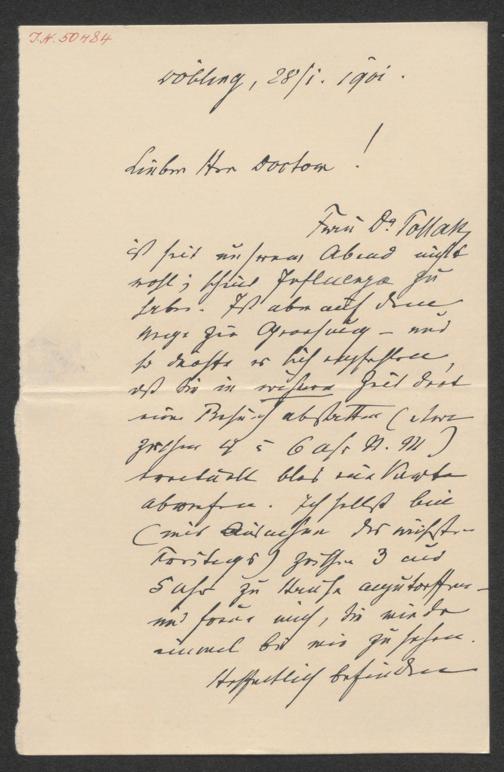 I.N. 50484
Döbling, 28/I. 1901.
Lieber Herr Doctor !
Frau Dr Pollak
ist seit unserem Abend nicht
wohl; scheint Influenza zu
haben. Ist aber auf dem
Wege zur Genesung – und
so dürfte es sich empfehlen,
daß Sie in nächster Zeit dort
einen Besuch abstatten (etwa
zwischen 4 – 6 Uhr N. M.)
eventuell blos eine Karte
abwerfen. Ich selbst bin
(mit Ausnahme des nächsten
Freitags) zwischen 3 und
5 Uhr zu Hause anzutreffen –
und freue mich, Sie wieder
einmal bei mir zu sehen.
Hoffentlich befinden